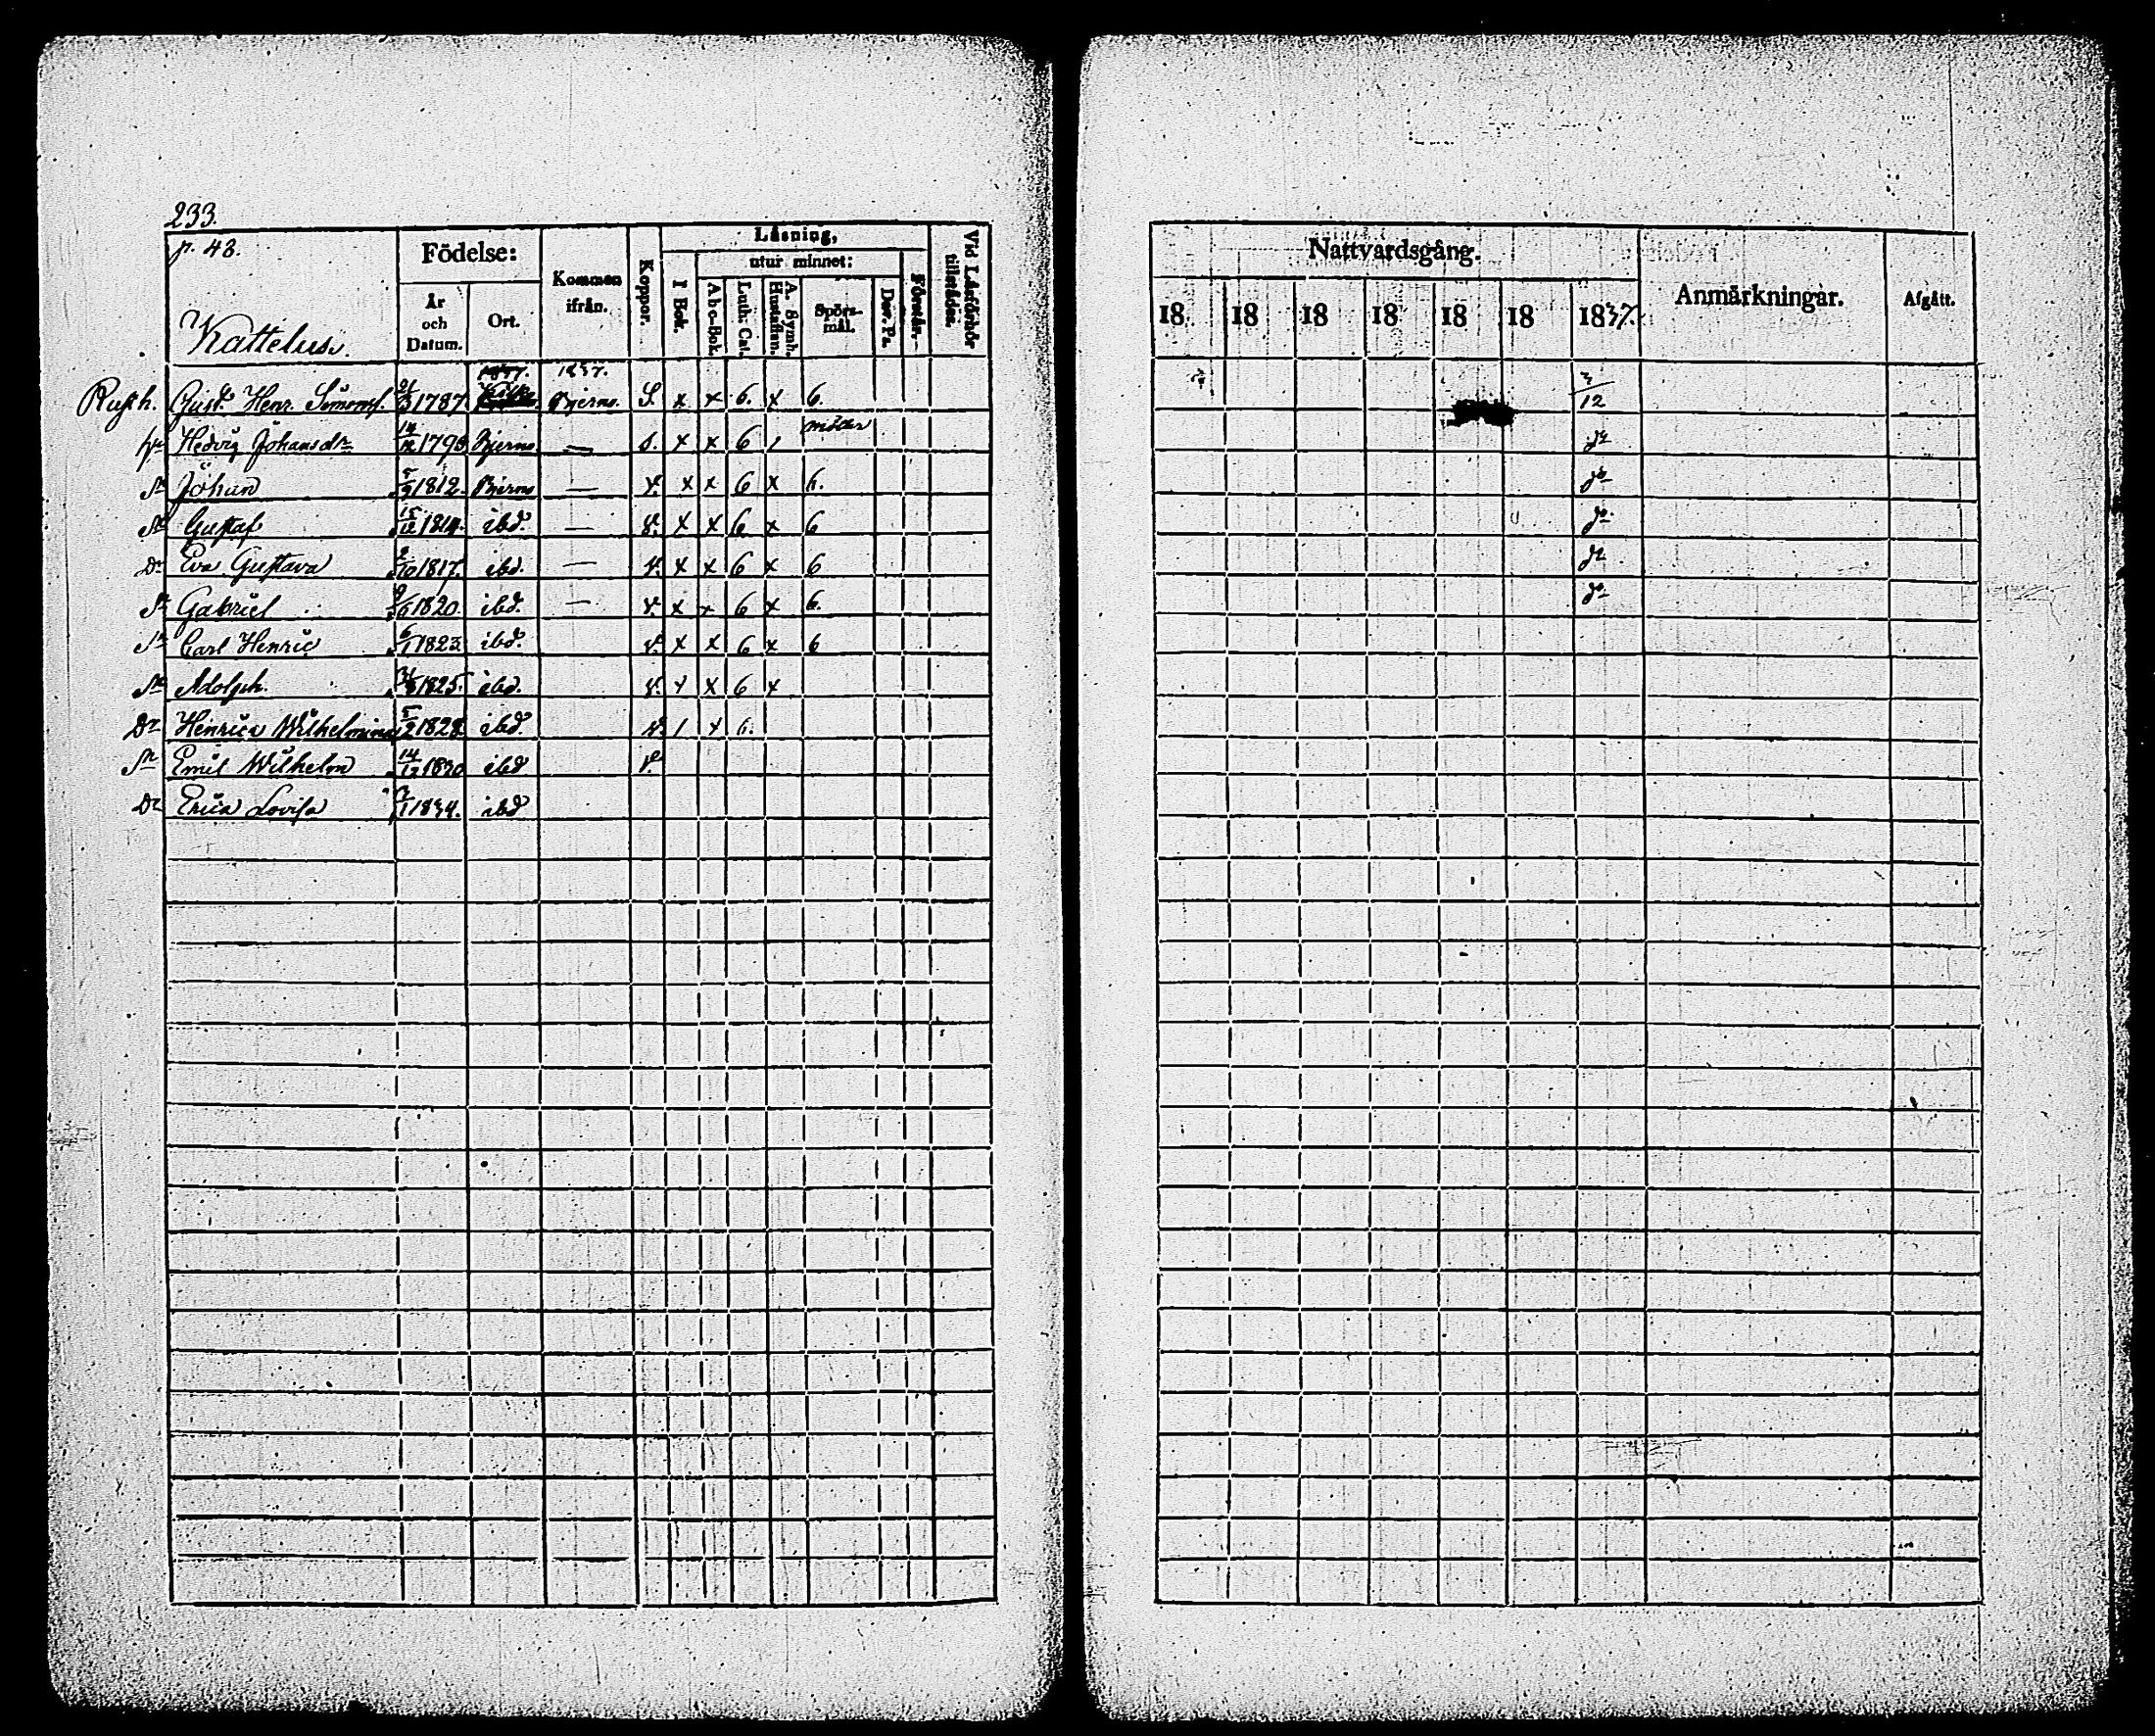 233.
p. 43.
Födelse:
Kommen ifrån.
Koppor.
Läsning,
I Bok.
utur minnet:
Abc-Bok.
Luth: Cat.
A. Symb. Hustaflan.
Spörs-mål.
Dav. Ps.
Förstår.
Vid Läsförhör tillstädes.
År och Datum.
Ort.
Kattelus.
Nattvardsgång.
Anmärkningar.
Afgått.
18 18 18 18 18 18 1837.
1837.
Rusth. Gust. Henr. Simonss. 1787 Bjerno. S. x x 6. x 6. 12
Hedvig Johansdr 14/12 Bjerno — s. x x 6 1 do
Sn Johan 5/9 1812. Bjerno — v. x x 6 x 6. do
Sn Gustaf 15/12 1814. ibd. — v. x x 6 x 6 do
Dr Eva Gustava 2/10 1817. ibd. — v. x x 6 x 6 do
Sn Gabriel 9/6 1820. ibd. — v. x x 6 x 6. do
Sn Carl Henric 6/1 1823. ibd. v. x x 6 x 6
Sn Adolph. 1825. ibd. v. x x 6 x
Dr Henrica Wilhelmina 1828 ibd. v. 1 x 6.
Sn Emil Wilhelm 14/12 1830 ibd v.
Dr Erica Lovisa 1834. ibd